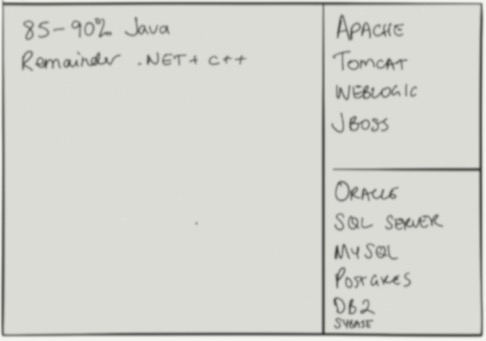 85-90% Java
Remainder .NET + C++
APACHE
TOMCAT
WEBLOGIC
JBOSS
ORACLE
SQL SERVER
MYSQL
POSTGRES
DB2
SYBASE